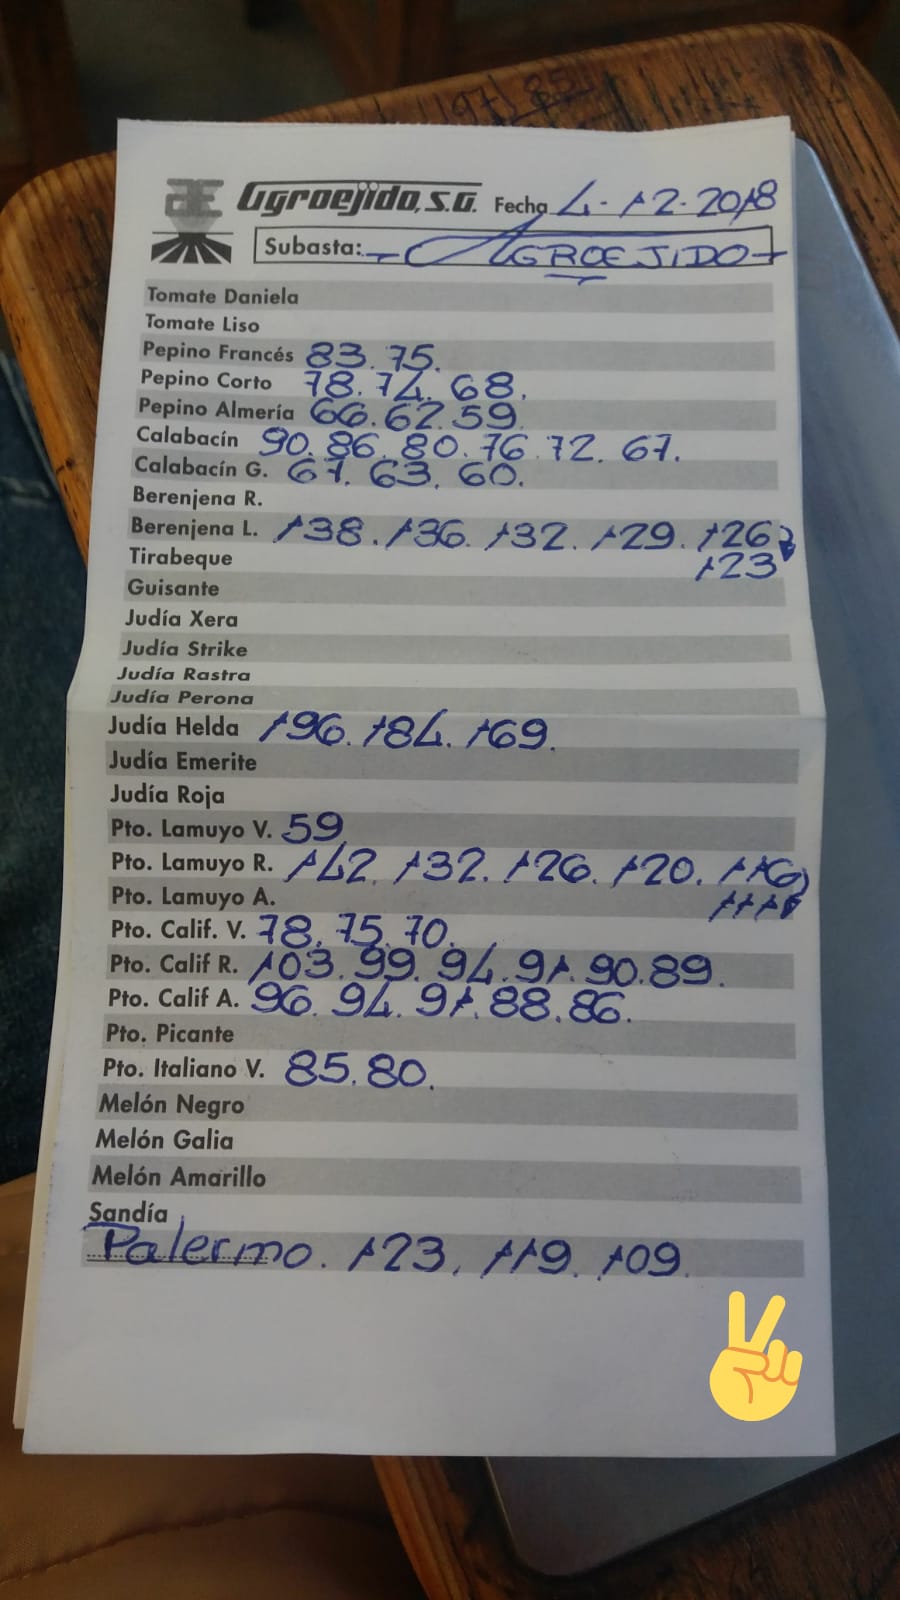 Agroejido, S.A. Fecha 4-12-2018
Subasta: - AGROEJIDO -
Tomate Daniela
Tomate Liso
Pepino Francés 83. 75.
Pepino Corto 78. 74. 68.
Pepino Almería 66. 62. 59
Calabacín 90. 86. 80. 76. 72. 67.
Calabacín G. 67. 63. 60.
Berenjena R.
Berenjena L. 138. 136. 132. 129. 126
123
Tirabeque
Guisante
Judía Xera
Judía Strike
Judía Rastra
Judía Perona
Judía Helda 196. 184. 169.
Judía Emerite
Judía Roja
Pto. Lamuyo V. 59
Pto. Lamuyo R. 142. 132. 126. 120. 116
111
Pto. Lamuyo A.
Pto. Calif. V. 78. 75. 70.
Pto. Calif R. 103. 99. 94. 91. 90. 89.
Pto. Calif A. 96. 94. 91. 88. 86.
Pto. Picante
Pto. Italiano V. 85. 80.
Melón Negro
Melón Galia
Melón Amarillo
Sandía
Palermo. 123. 119. 109.